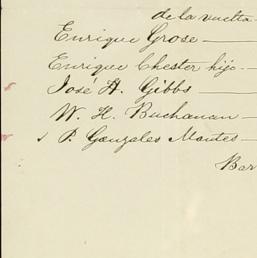 de la vuelta
Enrique Grose
Enrique Chester hijo
José H. Gibbs
W. H. Buchanan
P. Gonzales Montes
Bar